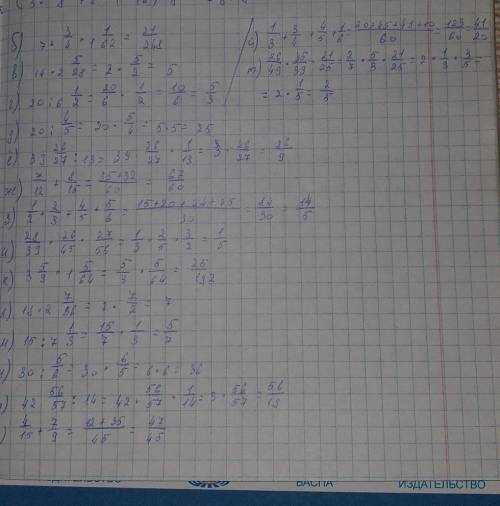 б) 7 · 3/4 · 1 1/62 = 21/248
в) 14 · 2 5/28 = 2 · 5/2 = 5
г) 20 : 6 · 1/2 = 20/6 · 1/2 = 10/6 = 5/3
д) 20 : 4/5 = 20 · 5/4 = 5 · 5 = 25
ё) 39 26/27 : 13 = 39 · 26/27 · 1/13 = 3 · 26/27 = 26/9
ж) 7/12 + 8/15 = 35+32/60 = 67/60
з) 1/2 + 2/3 + 4/5 + 5/6 = 15+20+24+25/30 = 84/30 = 14/5
и) 28/39 · 26/45 · 27/56 = 1/3 · 2/5 · 3/2 = 1/5
к) 3 5/9 · 1 5/64 = 5/3 · 5/64 = 25/192
л) 16 · 2 7/36 = 2 · 7/2 = 7
м) 15 : 7 1/3 = 15/7 · 1/3 = 5/7
30 : 5/6 = 30 · 6/5 = 6 · 6 = 36
42 56/57 : 14 = 42 · 56/57 · 1/14 = 3 · 56/57 = 56/19
4/15 + 7/9 = 12+35/45 = 47/45
с) 1/3 + 3/4 + 4/5 + 1/6 = 20+45+48+10/60 = 123/60 = 41/20
т) 26/49 · 35/39 · 21/25 = 2/7 · 5/3 · 21/25 = 2 · 1/3 · 3/5 =
= 2 · 1/5 = 2/5
ВАСПА
ИЗДАТЕЛЬСТВО